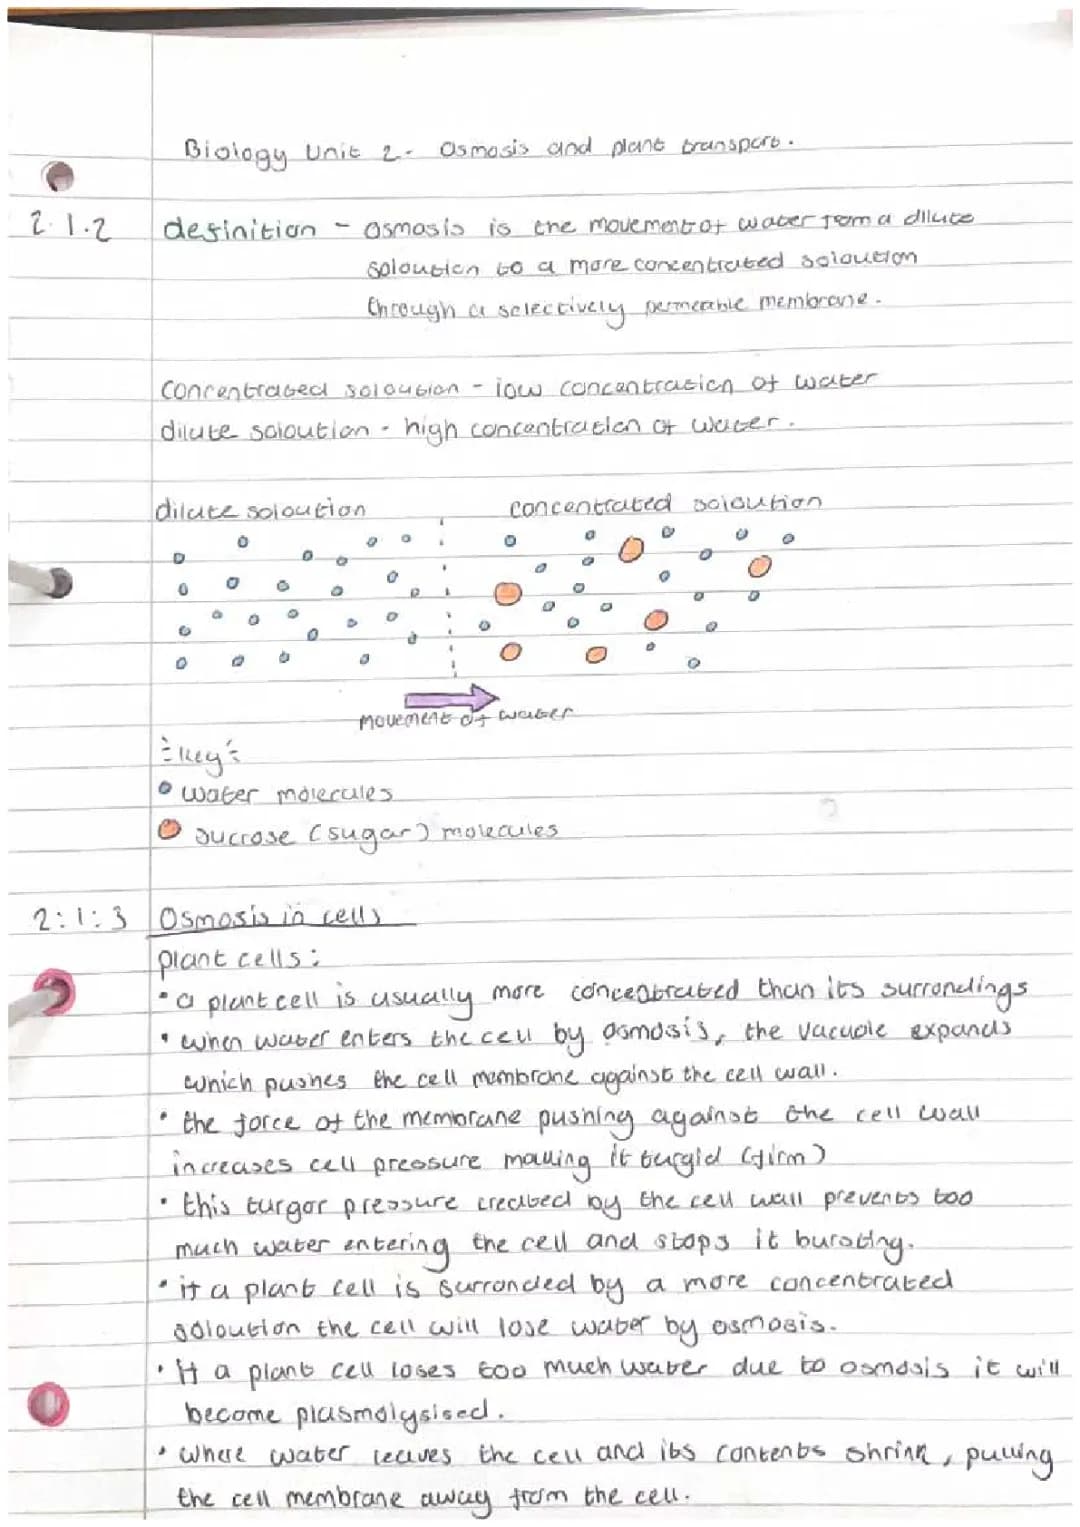 Biology Unit 2 - Osmosis and plant transport.
2.1.2 definition - osmosis is the movement of water from a dilute
soloution to a more concentrated soloution
through a selectively permeable membrane.
Concentrated soloution - low concentration of water
dilute soloution - high concentration of water.
dilute soloution concentrated soloution
movement of water
key
water molecules
sucrose (sugar) molecules
2:1:3 Osmosis in cells
plant cells:
• a plant cell is usually more concentrated than its surrondings
• when water enters the cell by osmosis, the vacuole expands
which pushes the cell membrane against the cell wall.
• the force of the membrane pushing against the cell wall
increases cell pressure making it turgid (firm)
• this turgor pressure created by the cell wall prevents too
much water entering the cell and stops it bursting.
• if a plant cell is surronded by a more concentrated
soloution the cell will lose water by osmosis.
• If a plant cell loses too much water due to osmosis it will
become plasmolysised.
• where water leaves the cell and its contents shrink, pulling
the cell membrane away from the cell.